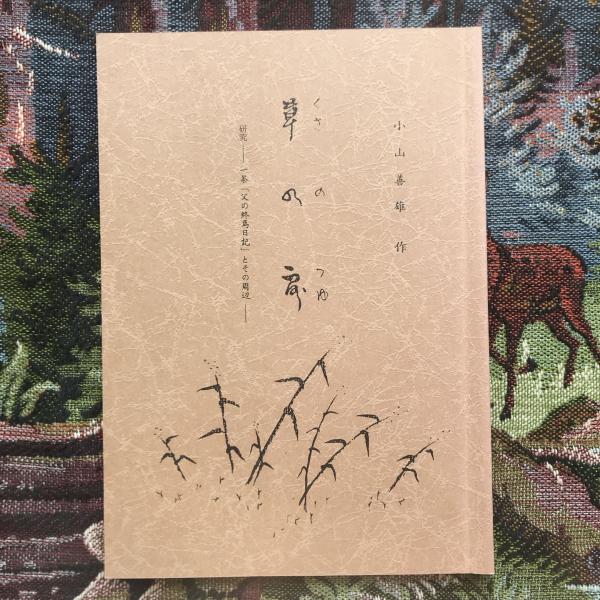 小山善雄 作
くさ の つゆ
草の露
研究――一茶「父の終焉日記」とその周辺――